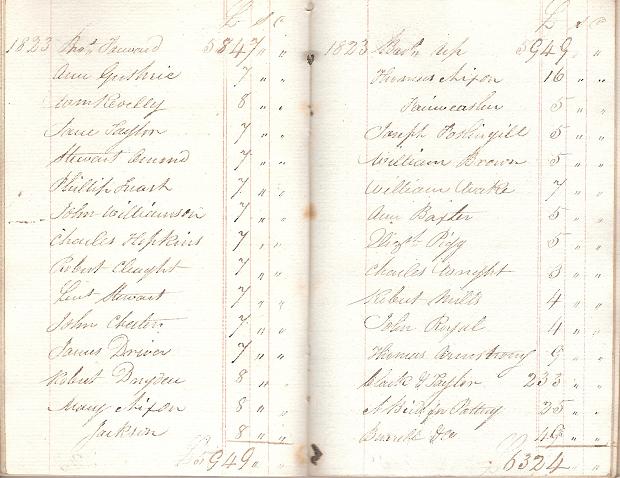 £ s
1823 Brot Forward 5847 " "
Ann Guthrie 7 " "
Wm Reveley 8 " "
Jane Taylor 7 " "
Stewart 7 " "
Phillip 7 " "
John Williamson 7 " "
Charles Hopkins 7 " "
Robert Cleught 7 " "
Stewart 7 " "
John 7 " "
James Driver 7 " "
Robert Dryden 8 " "
Mary Nixon 8 " "
Jackson 8 " "
£5949 " "
£ s
1823 Brot up 5949 " "
Thomas Nixon 16 " "
Fairweather 5 " "
Joseph Fothingill 5 " "
William Brown 5 " "
William 7 " "
Ann Baxter 5 " "
Pigg 5 " "
Charles Wright 5 " "
Robert Mills 4 " "
John Royal 4 " "
Thomas Armstrong 9 " "
Clark & Taylor 233 " "
Pottery 25 " "
Burrell 49 " "
£6324 " "